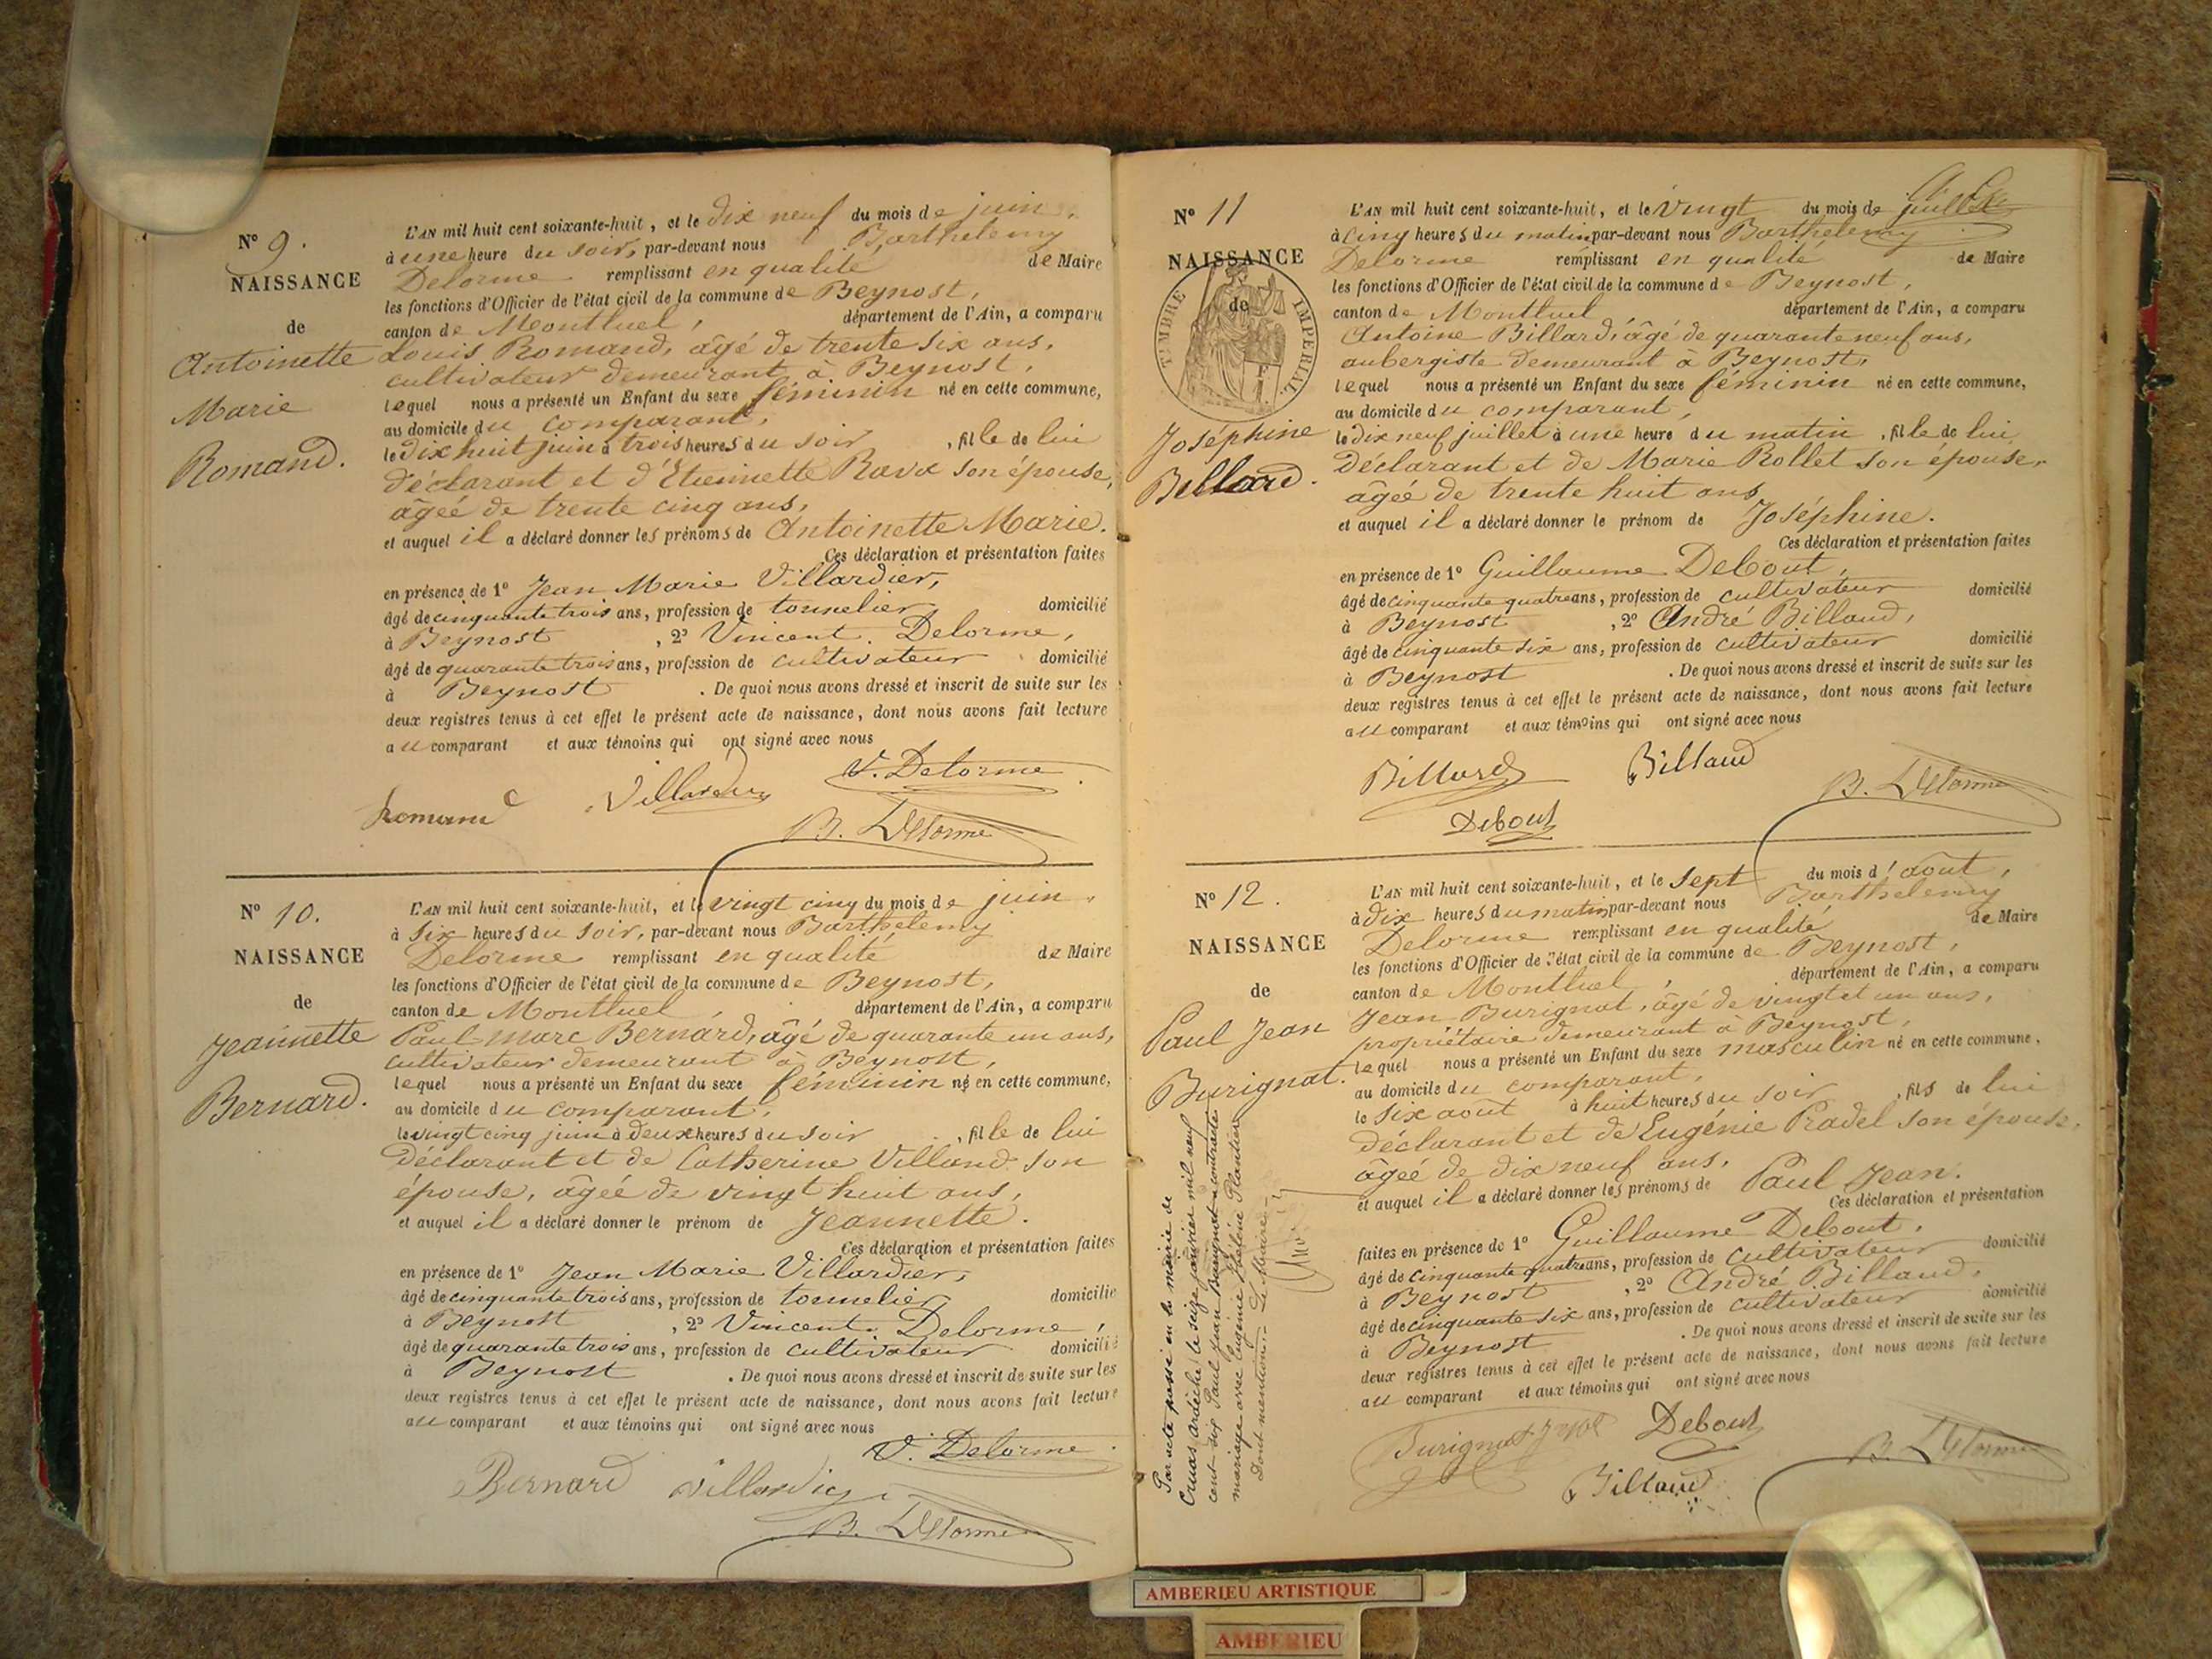 N° 9.
NAISSANCE
de
Antoinette
Marie
Romand.
L'AN mil huit cent soixante-huit, et le dix neuf du mois de juin,
à une heure du soir, par-devant nous Barthelemy
Delorme remplissant en qualité de Maire
les fonctions d'Officier de l'état civil de la commune de Beynost,
canton de Montluel, département de l'Ain, a comparu
Louis Romand, âgé de trente six ans,
cultivateur demeurant à Beynost,
lequel nous a présenté un Enfant du sexe féminin né en cette commune,
au domicile du comparant,
le dix huit juin à trois heures du soir, fille de lui
déclarant et d'Etiennette son épouse,
âgée de trente cinq ans,
et auquel il a déclaré donner les prénoms de Antoinette Marie.
Ces déclaration et présentation faites
en présence de 1° Jean Marie Villardier,
âgé de cinquante trois ans, profession de tonnelier domicilié
à Beynost, 2° Vincent Delorme,
âgé de quarante trois ans, profession de cultivateur domicilié
à Beynost. De quoi nous avons dressé et inscrit de suite sur les
deux registres tenus à cet effet le présent acte de naissance, dont nous avons fait lecture
au comparant et aux témoins qui ont signé avec nous
V. Delorme
Romand Villardier
B. Delorme
N° 10.
NAISSANCE
de
Jeannette
Bernard.
L'AN mil huit cent soixante-huit, et le vingt cinq du mois de juin,
à six heures du soir, par-devant nous Barthelemy
Delorme remplissant en qualité de Maire
les fonctions d'Officier de l'état civil de la commune de Beynost,
canton de Montluel, département de l'Ain, a comparu
Paul-Marc Bernard, âgé de quarante un ans,
cultivateur demeurant à Beynost,
lequel nous a présenté un Enfant du sexe féminin né en cette commune,
au domicile du comparant,
le vingt cinq juin à deux heures du soir, fille de lui
déclarant et de Catherine Villand son
épouse, âgée de vingt huit ans,
et auquel il a déclaré donner le prénom de Jeannette.
Ces déclaration et présentation faites
en présence de 1° Jean Marie Villardier,
âgé de cinquante trois ans, profession de tonnelier domicilié
à Beynost, 2° Vincent Delorme,
âgé de quarante trois ans, profession de cultivateur domicilié
à Beynost. De quoi nous avons dressé et inscrit de suite sur les
deux registres tenus à cet effet le présent acte de naissance, dont nous avons fait lecture
au comparant et aux témoins qui ont signé avec nous
V. Delorme
Bernard Villardier
B. Delorme
N° 11
NAISSANCE
de
TIMBRE IMPERIAL
Joséphine
Billard.
L'AN mil huit cent soixante-huit, et le vingt du mois de juillet
à cinq heures du matin par-devant nous Barthelemy
Delorme remplissant en qualité de Maire
les fonctions d'Officier de l'état civil de la commune de Beynost,
canton de Montluel département de l'Ain, a comparu
Antoine Billard, âgé de quarante neuf ans,
aubergiste demeurant à Beynost,
lequel nous a présenté un Enfant du sexe féminin né en cette commune,
au domicile du comparant,
le dix neuf juillet à une heure du matin, fille de lui
déclarant et de Marie Rollet son épouse,
âgée de trente huit ans
et auquel il a déclaré donner le prénom de Joséphine.
Ces déclaration et présentation faites
en présence de 1° Guillaume Debout,
âgé de cinquante quatre ans, profession de cultivateur domicilié
à Beynost, 2° André Billaud,
âgé de cinquante six ans, profession de cultivateur domicilié
à Beynost. De quoi nous avons dressé et inscrit de suite sur les
deux registres tenus à cet effet le présent acte de naissance, dont nous avons fait lecture
au comparant et aux témoins qui ont signé avec nous
Billard Billaud
B. Delorme
Debout
N° 12.
NAISSANCE
de
Paul Jean
Burignat.
L'AN mil huit cent soixante-huit, et le sept du mois d'août,
à dix heures du matin par-devant nous Barthelemy
Delorme remplissant en qualité de Maire
les fonctions d'Officier de l'état civil de la commune de Beynost,
canton de Montluel, département de l'Ain, a comparu
Jean Burignat, âgé de vingt et un ans,
propriétaire demeurant à Beynost,
lequel nous a présenté un Enfant du sexe masculin né en cette commune,
au domicile du comparant,
le six août à huit heures du soir, fils de lui
déclarant et de Eugénie Pradel son épouse,
âgée de dix neuf ans,
et auquel il a déclaré donner les prénoms de Paul Jean.
Ces déclaration et présentation
faites en présence de 1° Guillaume Debout,
âgé de cinquante quatre ans, profession de cultivateur domicilié
à Beynost, 2° André Billaud,
âgé de cinquante six ans, profession de cultivateur domicilié
à Beynost. De quoi nous avons dressé et inscrit de suite sur les
deux registres tenus à cet effet le présent acte de naissance, dont nous avons fait lecture
au comparant et aux témoins qui ont signé avec nous
Burignat Debout
B. Delorme
Billaud
Par acte passé en la mairie de
Cruas ardèche le seize janvier mil neuf
cent six Paul Jean Burignat a contracté
mariage avec Eugénie Hélène Plantier
Dont mention: Le Maire
AMBERIEU ARTISTIQUE
AMBERIEU